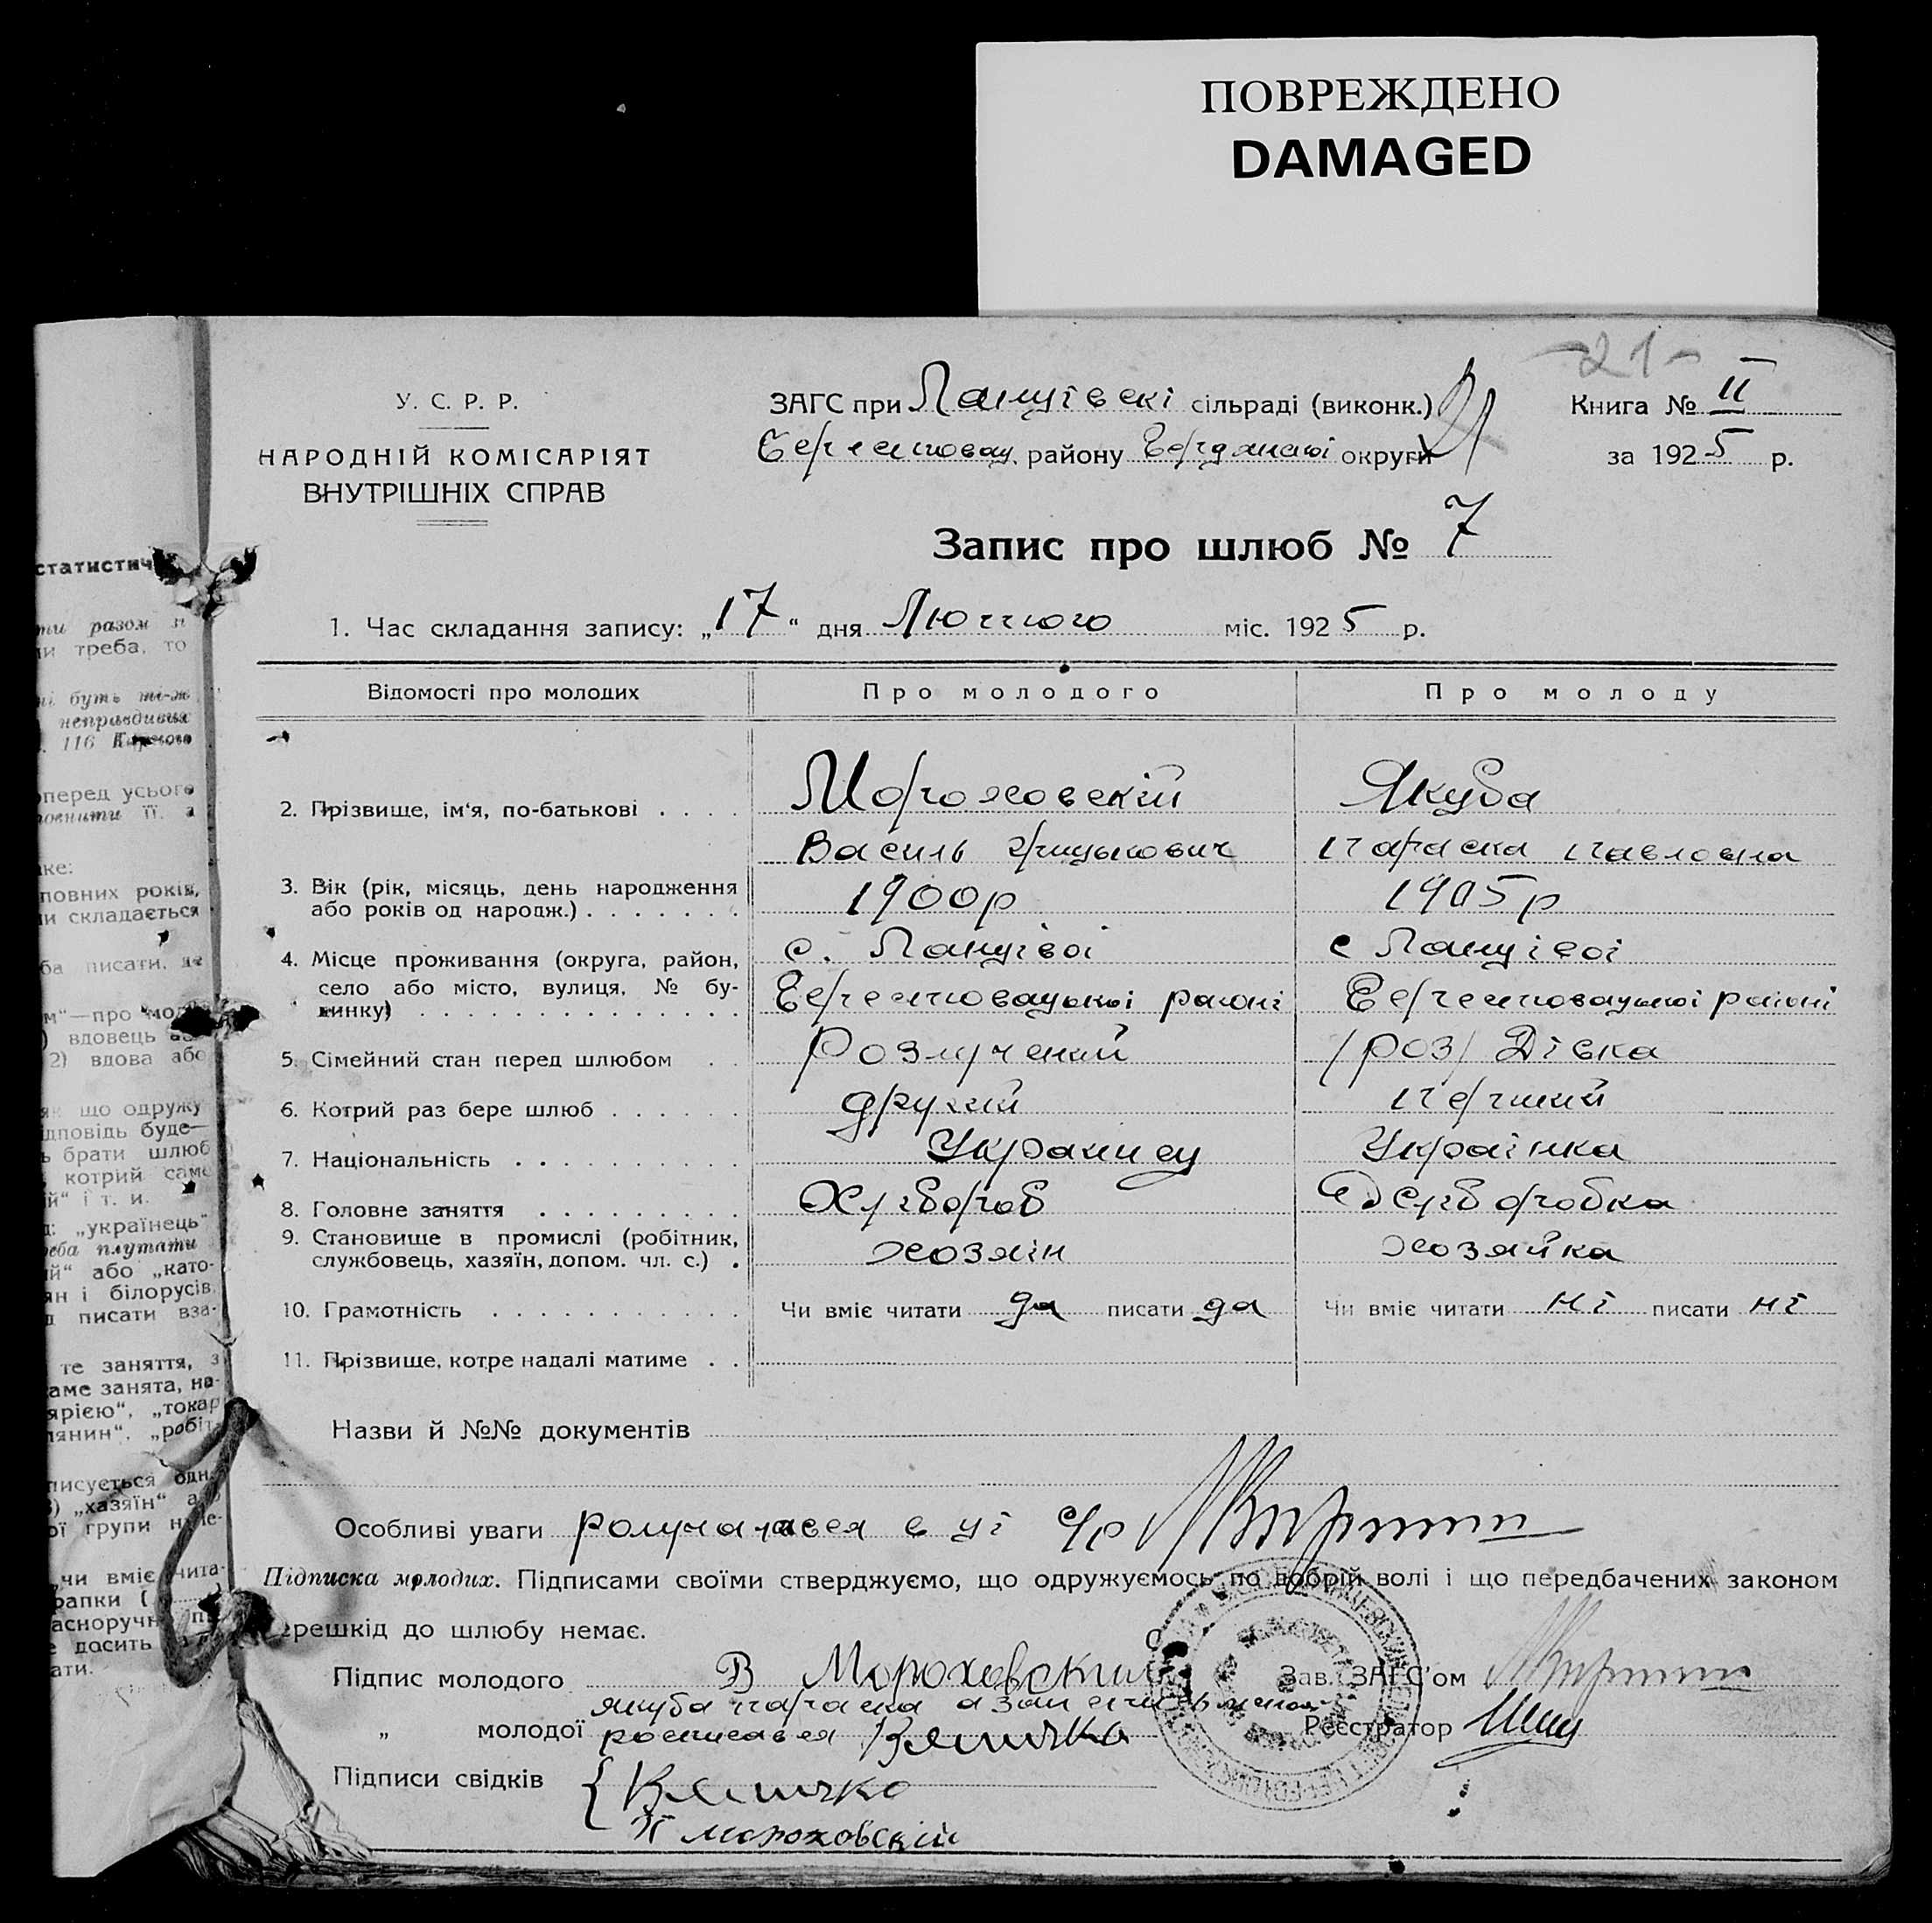 ПОВРЕЖДЕНО
DAMAGED
-21-
У. С. Р. Р.
НАРОДНІЙ КОМІСАРІЯТ
ВНУТРІШНІХ СПРАВ
ЗАГС при Ланцівскі сільраді (виконк.)
району округи
Книга № II
за 1925 р.
Запис про шлюб № 7
1. Час складання запису: „17“ дня Лютого міс. 1925 р.
Відомості про молодих
Про молодого
Про молоду
2. Прізвище, ім‘я, по-батькові . . . .
Мороховский
Василь Грицькович
Якуба
Параска Павловна
3. Вік (рік, місяць, день народження
або років од народж.) . . . . . . .
1900р
1905р
4. Місце проживання (округа, район,
село або місто, вулиця, № бу-
динку) . . . . . . . . . . . . . .
с. Ланцівоі
районі
с Ланцівоі
районі
5. Сімейний стан перед шлюбом . .
Розлучений
/роз/ Дівка
6. Котрий раз бере шлюб . . . . . .
другий
перший
7. Національність . . . . . . . . . .
Украинец
Украінка
8. Головне заняття . . . . . . . . .
Хлібороб
Хліборобка
9. Становище в промислі (робітник,
службовець, хазяїн, допом. чл. с.) .
хозяін
хозяйка
10. Грамотність . . . . . . . . . . .
Чи вміє читати да писати да
Чи вміє читати ні писати ні
11. Прізвище, котре надалі матиме . .
Назви й №№ документів
Особливі уваги с/р
Підписка молодих. Підписами своїми стверджуємо, що одружуємось по добрій волі і що передбачених законом
перешкід до шлюбу немає.
Підпис молодого В Мороховский
Зав. ЗАГС‘ом
„ молодої Якуба Параска а за
росписався
Реєстратор
Підписи свідків
Мороховский
статистич
ти разом з
ми треба, то
ні буть
неправдивих
116
оперед усього
повнити її, а
ке:
повних років,
ми складається
ба писати, де
м“—про мол
) вдовець
2) вдова або
як що одружу
дповідь буде—
ь брати шлюб
котрий саме
ій“ і т. и.
д: „українець“
реба плутати
ий“ або „като-
ян і білорусів,
д писати вза-
те заняття, з
саме занята, на-
ярією“, „токар
лянин“, „робіт
писується одн
3) „хазяїн“ а
ої групи
чи вміє чита-
рапки (
асноручн
е досить
ати.